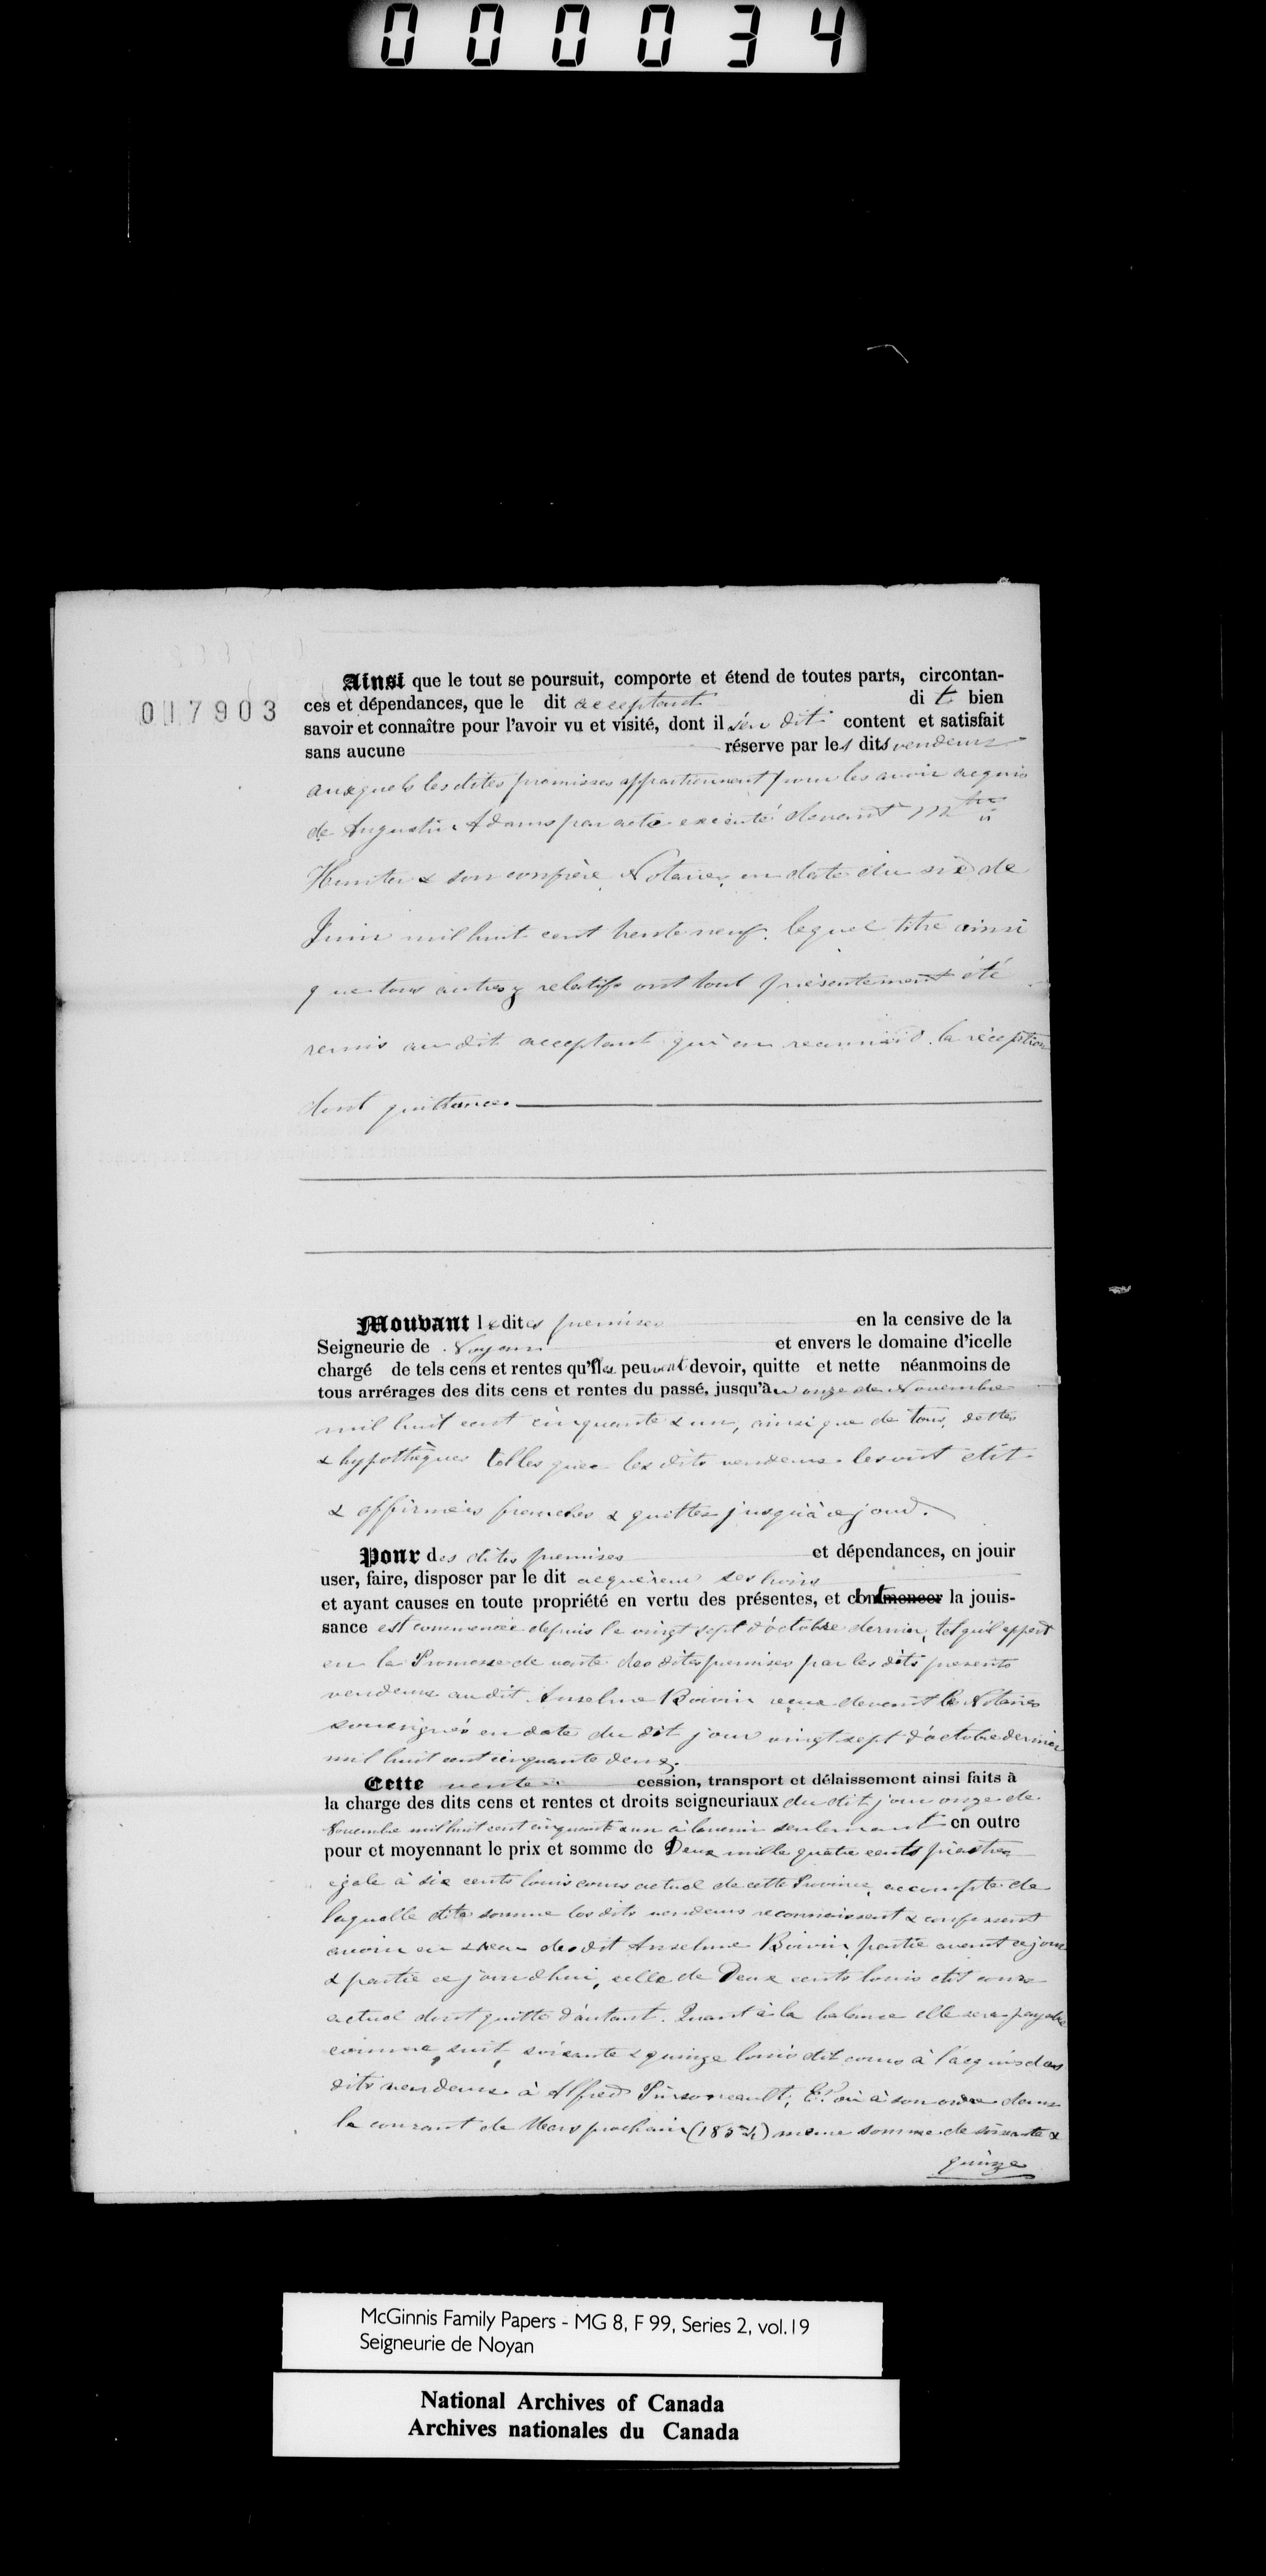 000034
Ainsi que le tout se poursuit, comporte et étend de toutes parts, circontan-
017903
ces et dépendances, que le dit acceptant dit bien
savoir et connaître pour l'avoir vu et visité, dont il s'en dit content et satisfait
sans aucune réserve par les dits vendeurs
auxquels les dites premisses appartiennent pour les avoir acquis
de Augustin Adams par acte exécuté devant Mtre
Hunter & son confrère Notaires, en date du six de
Juin mil huit cent trente neuf. lequel titre ainsi
que tous autres y relatifs ont tout présentement été
remis au dit acceptant qui en reconnait la réception
dont quittance.
Mouvant lesdites premises en la censive de la
Seigneurie de Noyan et envers le domaine d'icelle
chargé de tels cens et rentes qu'Iles peuvent devoir, quitte et nette néanmoins de
tous arrérages des dits cens et rentes du passé, jusqu'au onze de Novembre
mil huit cent cinquante & un, ainsi que de tous, dettes
& hypothèques telles que les dits vendeurs les ont dit
& affirmées franches & quittes jusqu'à ce jour.
Pour des dites premises et dépendances, en jouir
user, faire, disposer par le dit acquéreur ses hoirs
et ayant causes en toute propriété en vertu des présentes, et dont la jouis-
sance est commencée depuis le vingt sept d'octobre dernier, tel qu'il appert
en la Promesse de vente des dites premises par les dits presents
vendeurs au dit Anselme Boivin reçue devant les Notaires
soussignés en date du dit jour vingt sept d'octobre dernier
mil huit cent cinquante deux.
Cette vente cession, transport et délaissement ainsi faits à
la charge des dits cens et rentes et droits seigneuriaux du dit jour onze de
Novembre mil huit cent cinquante & un à l'avenir seulement en outre
pour et moyennant le prix et somme de Deux mille quatre cents piastres
égale à six cents louis cours actuel de cette Province, accompte de
laquelle dite somme les dits vendeurs reconnaissent & confessent
avoir eu & reçu du dit Anselme Boivin, partie avant ce jour
& partie ce jourd'hui, celle de Deux cents louis dit cours
actuel dont quitte d'autant. Quant à la balance elle sera payable
comme suit, soixante & quinze louis dit cours à l'acquis des
dits vendeurs à Alfred Pinsoneault, Er. ou à son ordre dans
le courant de Mars prochain (1854) même somme de soixante &
quinze
McGinnis Family Papers - MG 8, F 99, Series 2, vol.19
Seigneurie de Noyan
National Archives of Canada
Archives nationales du Canada